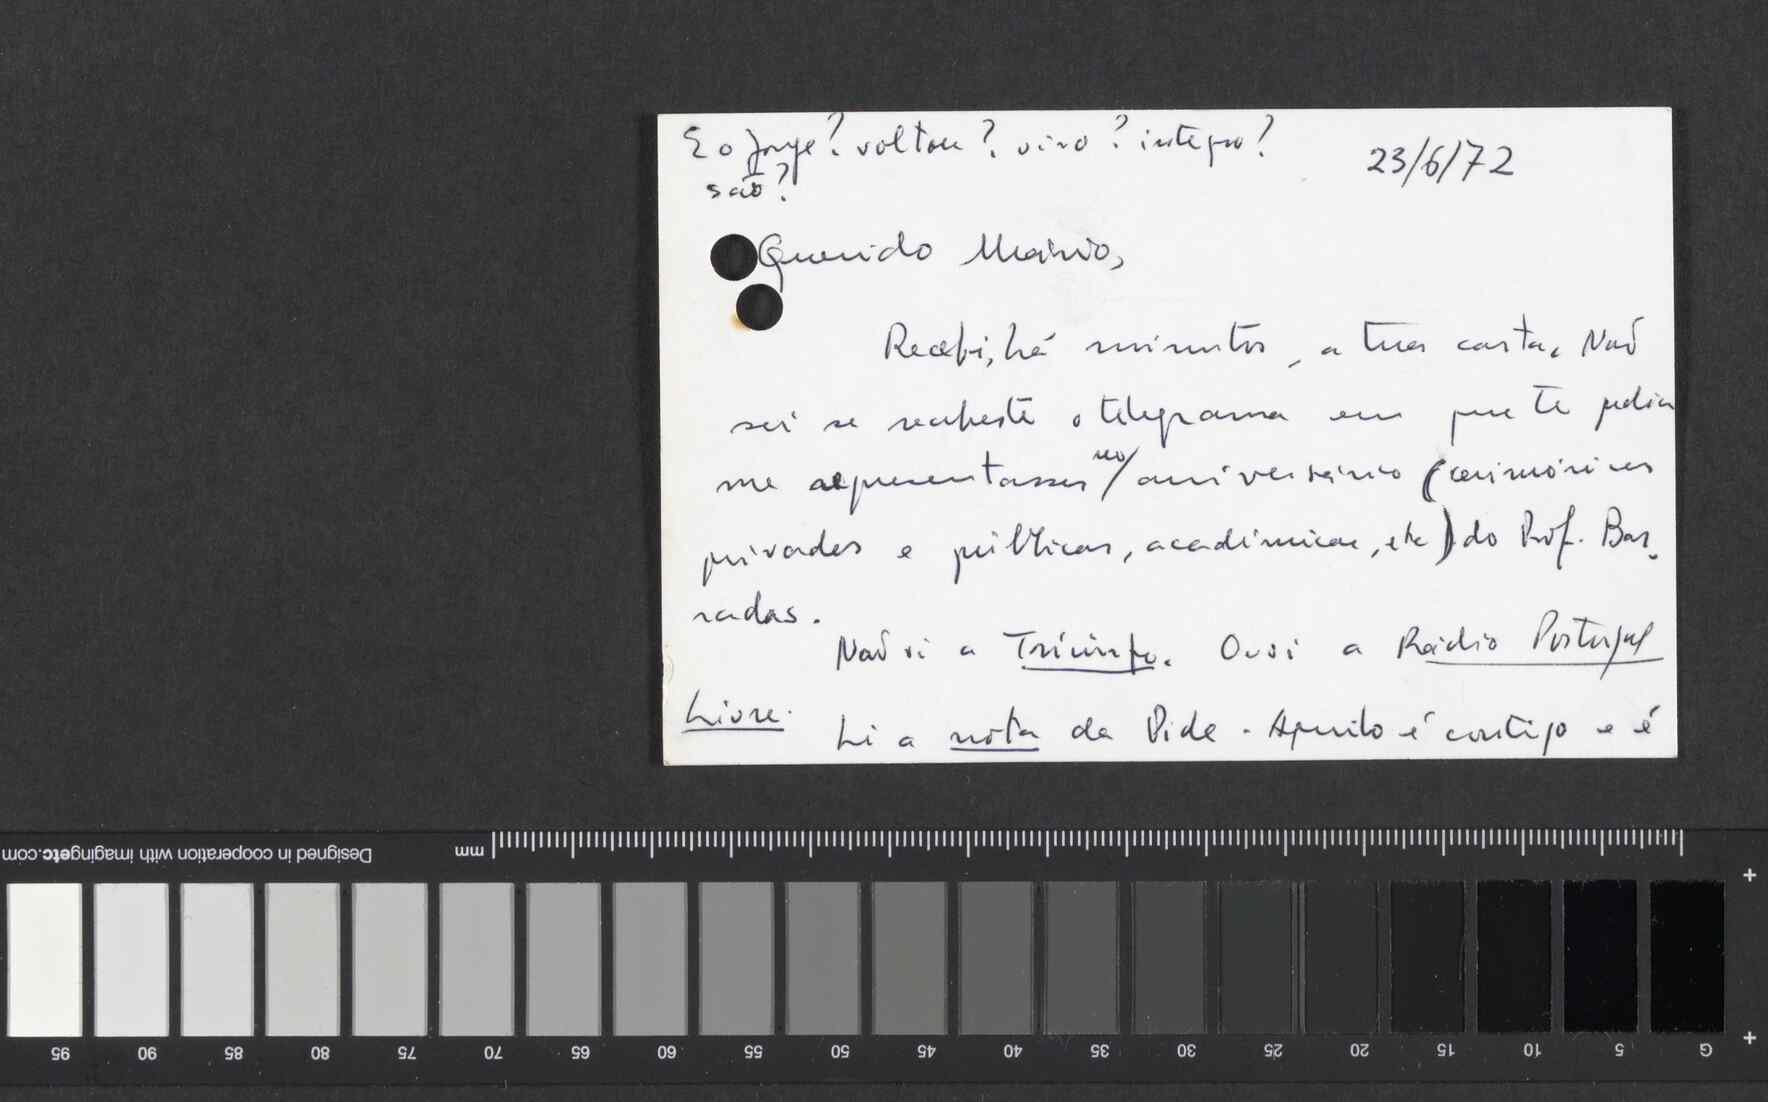 E o Jorge? voltou? vivo? íntegro?
são?
23/6/72
Querido Mário,
Recebi, há minutos, a tua carta. Não
sei se recebeste o telegrama em que te pedia
me representasses no aniversário (cerimónias
privadas e públicas, académicas, etc) do Prof. Bar-
radas.
Não vi a Triunfo. Ouvi a Rádio Portugal
Livre.
Li a nota da Pide. Aquilo é contigo e é
mm
Designed in cooperation with imagingetc.com
95 90 85 80 75 70 65 60 55 50 45 40 35 30 25 20 15 10 5 G